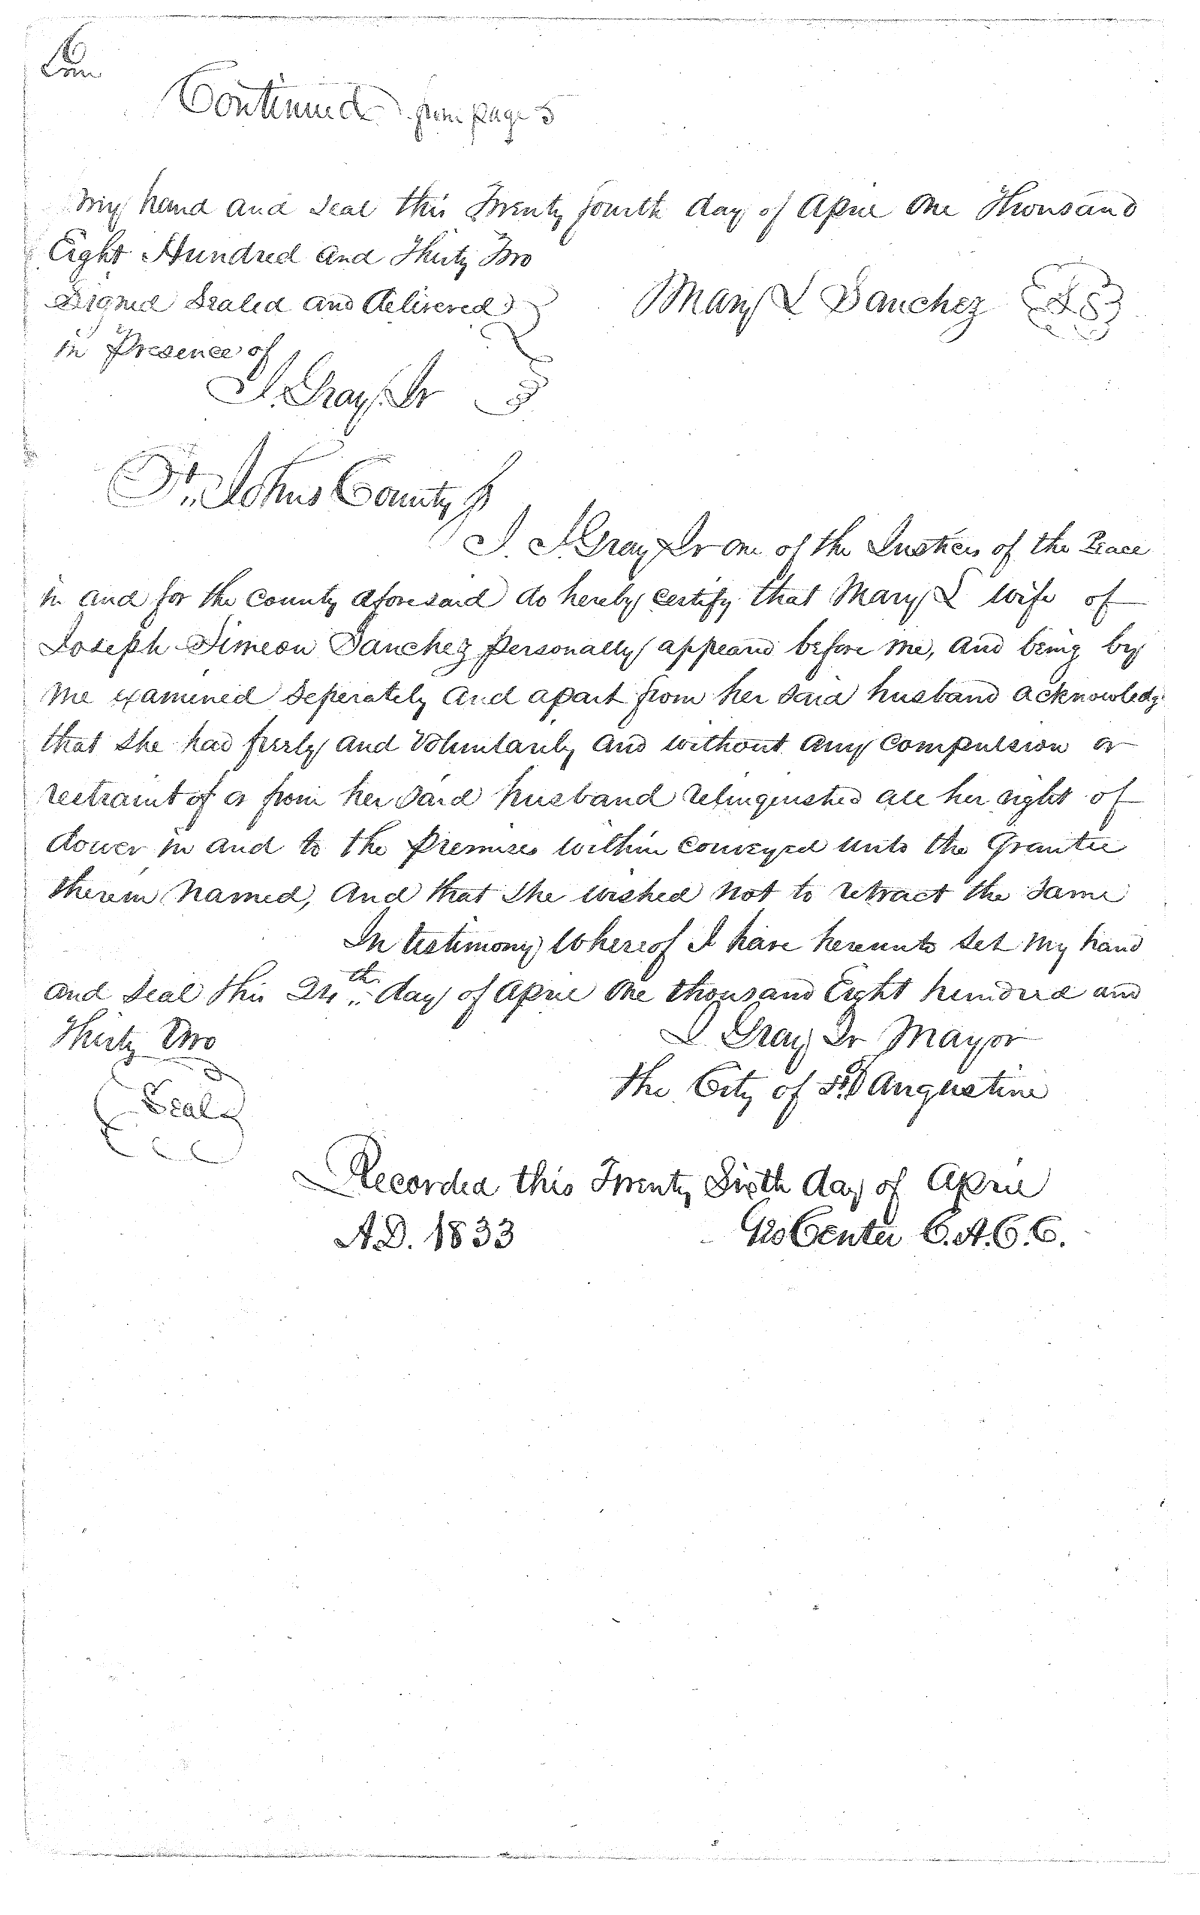 6
Continued from page 5
My hand and seal this Twenty fourth day of April One Thousand
Eight Hundred and Thirty Two
Signed Sealed and delivered
Mary L Sanchez LS
in Presence of
J. Gray Jr
St. Johns County ss
I. J Gray Jr one of the Justices of the Peace
in and for the county aforesaid do hereby certify that Mary L wife of
Joseph Simeon Sanchez personally appeard before me, and being by
me examined seperately and apart from her said husband acknowledg
that she had freely and Voluntarily and without any compulsion or
restraint of or from her said husband relinquished all her right of
dower in and to the Premises within conveyed unto the Grantee
therein named, and that she wished not to retract the same
In testimony Whereof I have hereunto set my hand
and seal this 24th day of April One thousand Eight hundred and
Thirty Two
J Gray Jr Mayor
the City of St Augustine
Seal
Recorded this Twenty Sixth day of April
A.D. 1833
Geo Center C.A.C.C.